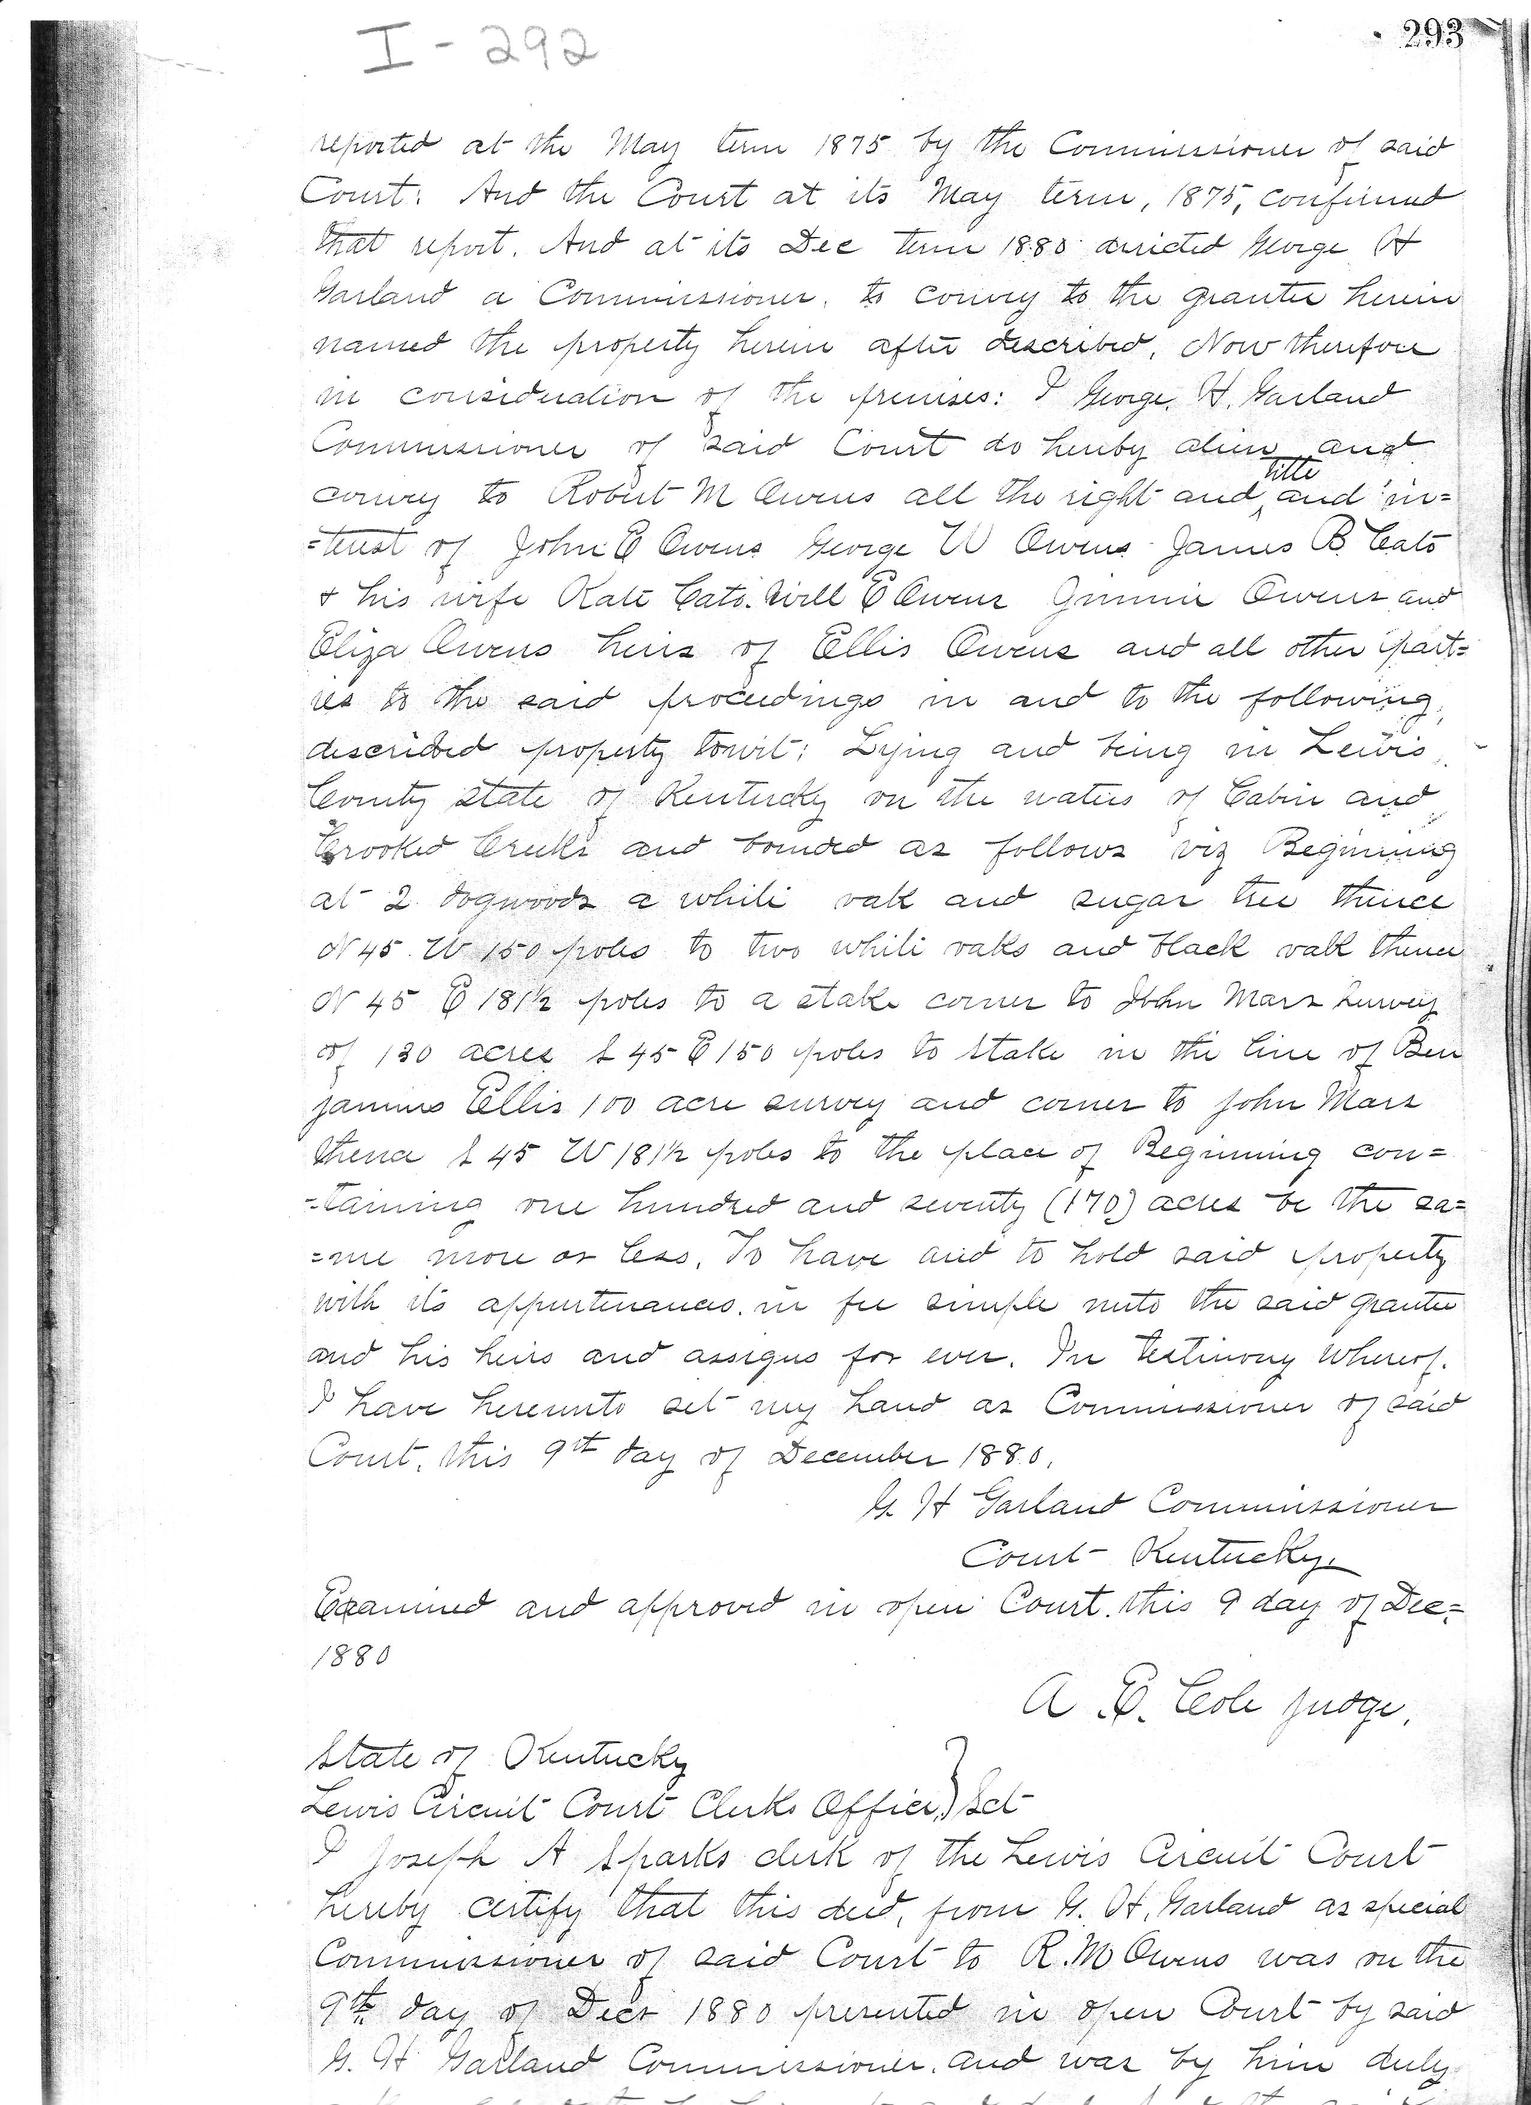 I - 292
293
reported at the May term 1875 by the Commissioner of said
Court: And the Court at its May term, 1875, confirmed
that report. And at its Dec term 1880 directed George H
Garland a Commissioner. to convey to the grantee herein
named the property herein after described. Now therefore
in consideration of the premises: I George. H. Garland
Commissioner of said Court do hereby alien and
title
convey to Robert M Owens all the right and, and in=
=terest of John E Owens George W Owens James B Cato
& his wife Kate Cato. Will E Owens Jimmie Owens and
Eliza Owens heirs of Ellis Owens and all other part=
ies to the said proceedings in and to the following,
described property towit: Lying and being in Lewis
County State of Kentucky on the waters of Cabin and
Crooked Creeks and bounded as follows viz Beginning
at 2 dogwoods a white oak and sugar tree thence
N 45 W 150 poles to two white oaks and black oak thence
N 45 E 181½ poles to a stake corner to John Mars Survey
of 130 acres S 45 E 150 poles to Stake in the line of Ben
jamins Ellis 100 acre survey and corner to John Mars
thence S 45 W 181½ poles to the place of Beginning con=
=taining one hundred and seventy (170) acres be the sa=
=me more or less. To have and to hold said property
with its appurtenances. in fee simple unto the said grantee
and his heirs and assigns for ever. In testimony whereof.
I have hereunto set my hand as Commissioner of said
Court. this 9th day of December 1880.
G. H Garland Commissioner
Court Kentucky.
Examined and approved in open Court. this 9 day of Dec=
1880
A. E. Cole Judge.
State of Kentucky
Lewis Circuit Court Clerks Office,} Sct
I Joseph A Sparks clerk of the Lewis Circuit Court
hereby certify that this deed, from G. H. Garland as special
Commissioner of said Court to R. M Owens was on the
9th day of Decr 1880 presented in open Court by said
G. H Garland Commissioner. and was by him duly